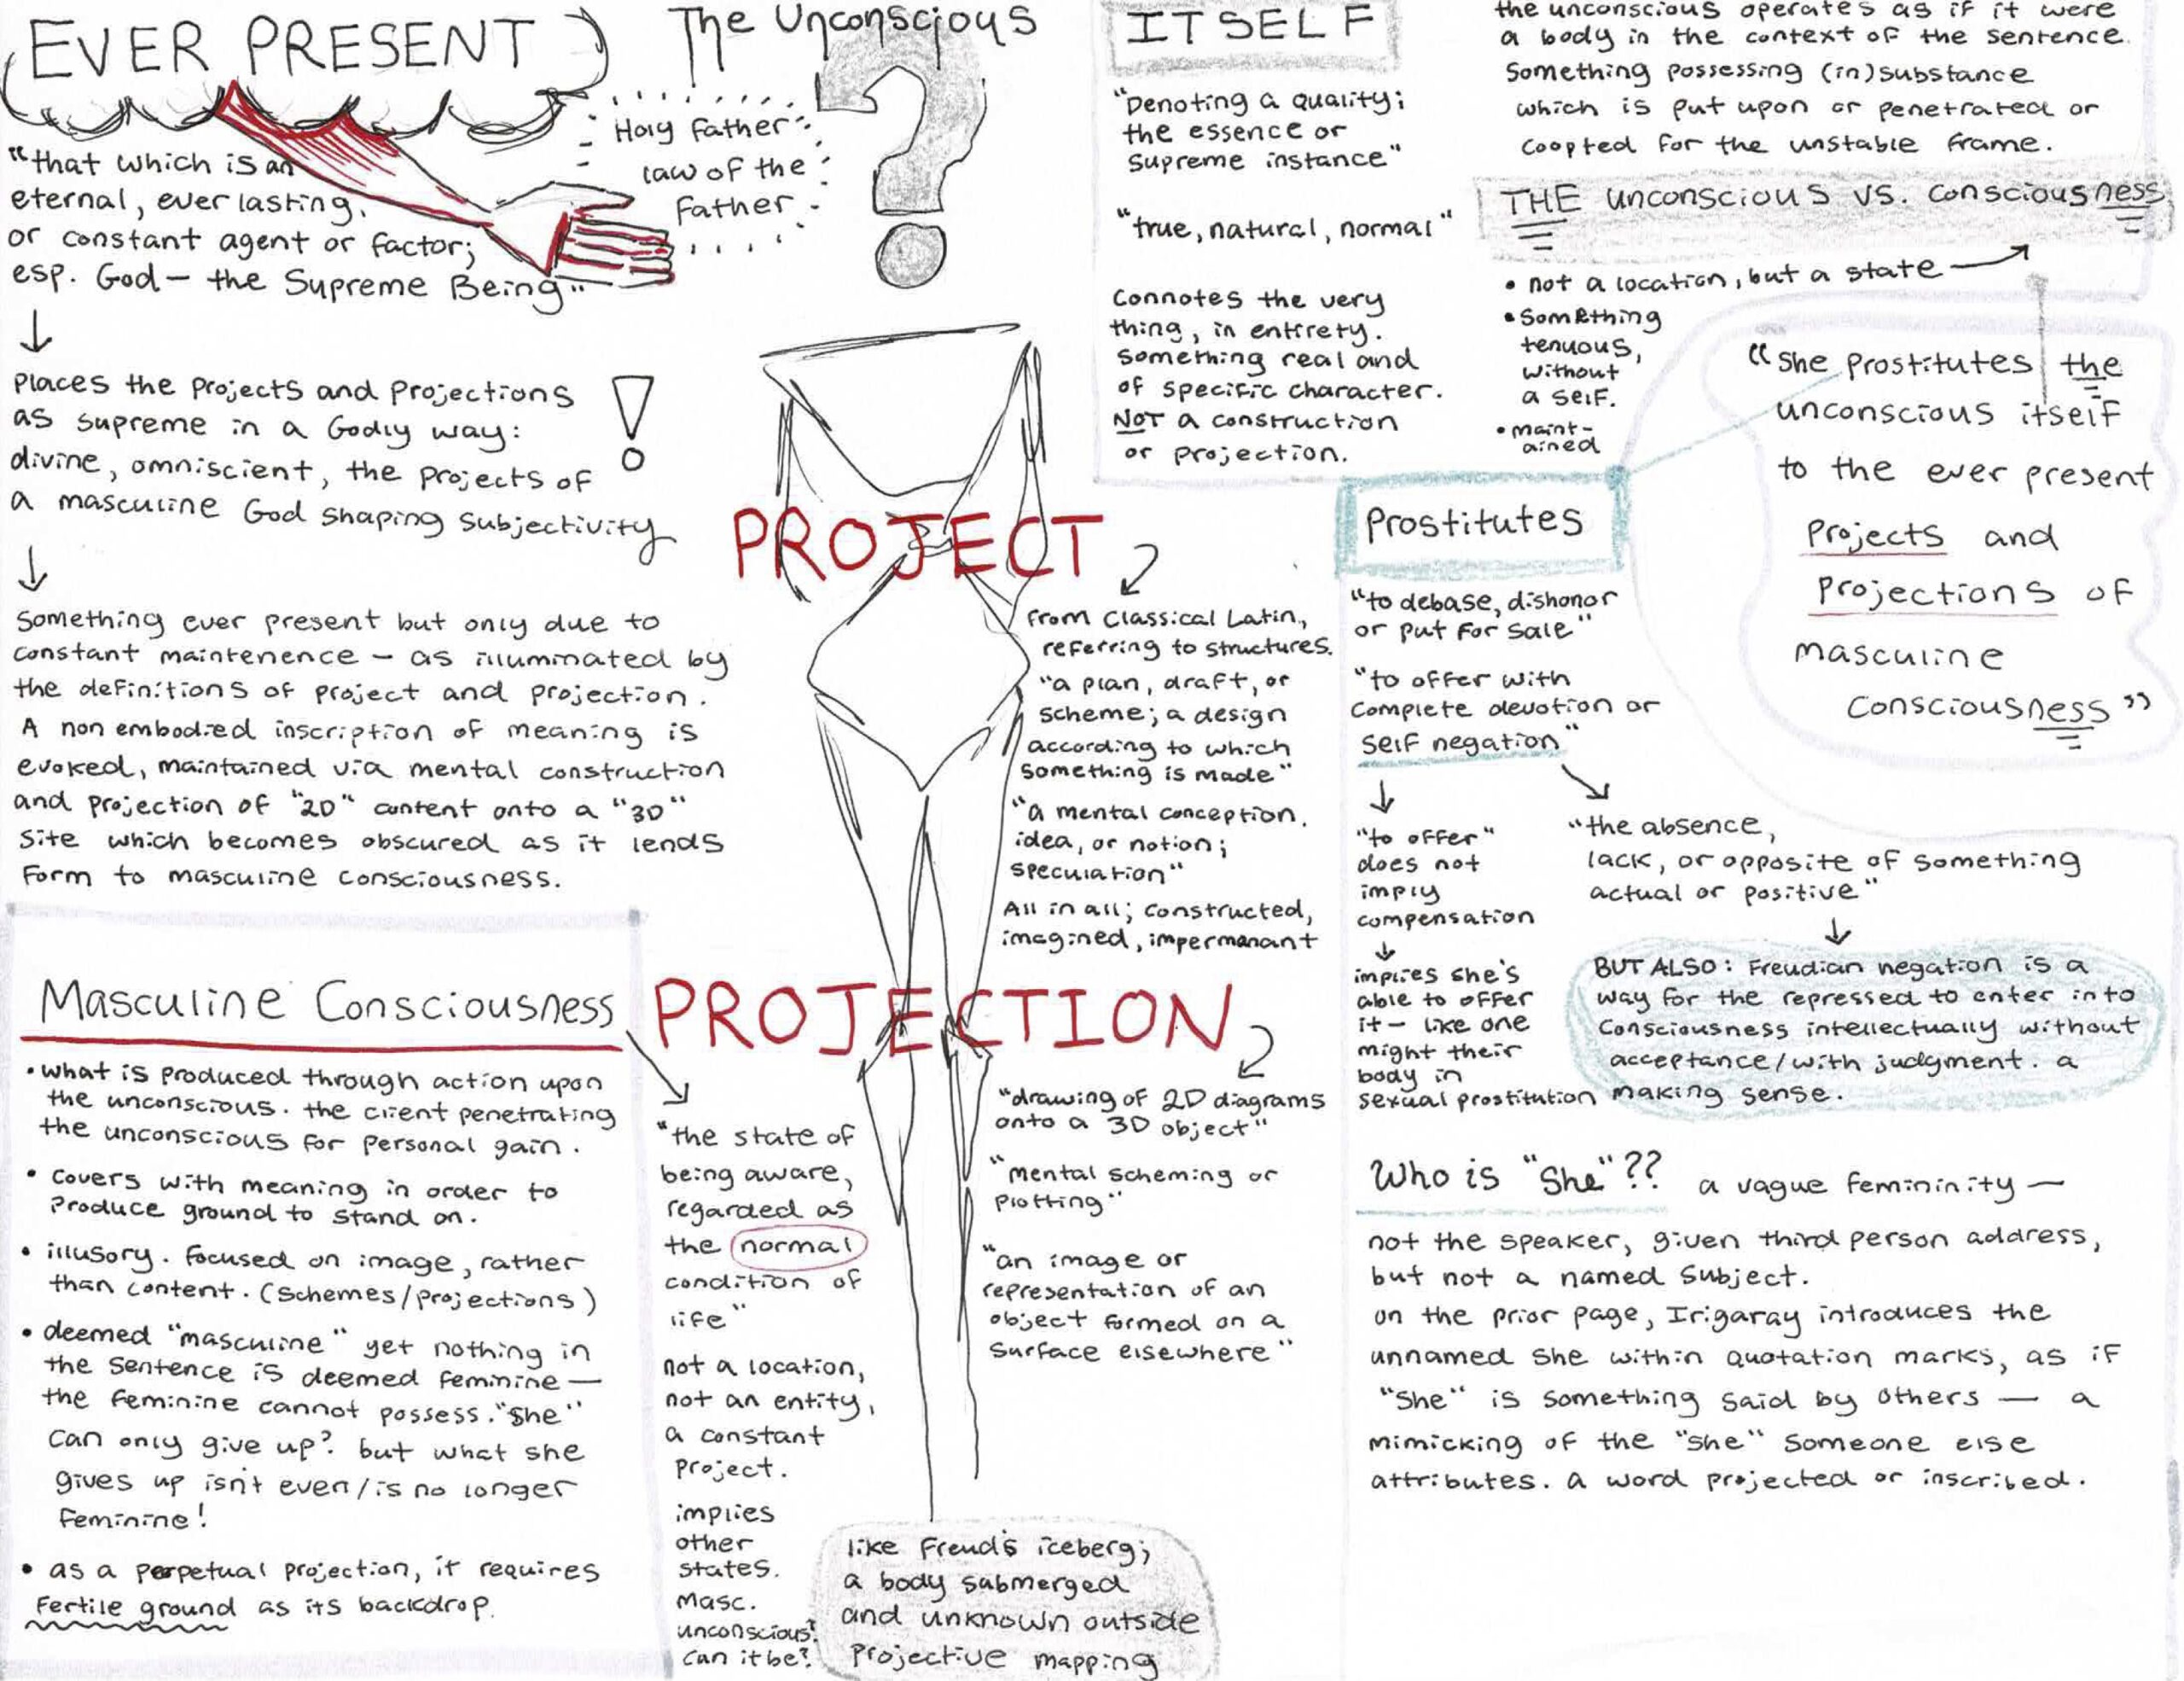 EVER PRESENT
"that which is an
eternal, everlasting,
or constant agent or factor;
esp. God — the Supreme Being"
Places the projects and projections
as supreme in a Godly way:
divine, omniscient, the projects of
a masculine God shaping subjectivity
!
Something ever present but only due to
constant maintenence — as illuminated by
the definitions of project and projection.
A non embodied inscription of meaning is
evoked, maintained via mental construction
and projection of "2D" content onto a "3D"
site which becomes obscured as it lends
form to masculine consciousness.
The Unconscious
?
Holy Father
law of the
Father
ITSELF
"Denoting a quality;
the essence or
supreme instance"
"true, natural, normal"
Connotes the very
thing, in entirety.
something real and
of specific character.
NOT a construction
or projection.
the unconscious operates as if it were
a body in the context of the sentence.
Something possessing (in)substance
which is put upon or penetrated or
coopted for the unstable frame.
THE unconscious vs. consciousness
• not a location, but a state
• something
tenuous,
without
a self.
• maint-
ained
"She prostitutes the
unconscious itself
to the ever present
projects and
projections of
masculine
consciousness"
PROJECT
from Classical Latin,
referring to structures.
"a plan, draft, or
scheme; a design
according to which
something is made"
"a mental conception,
idea, or notion;
speculation"
All in all; constructed,
imagined, impermanant
Prostitutes
"to debase, dishonor
or put for sale"
"to offer with
complete devotion or
self negation"
"to offer"
does not
imply
compensation
implies she's
able to offer
it — like one
might their
body in
sexual prostitution
"the absence,
lack, or opposite of something
actual or positive"
BUT ALSO: Freudian negation is a
way for the repressed to enter into
consciousness intellectually without
acceptance/with judgment. a
making sense.
Masculine Consciousness
• what is produced through action upon
the unconscious. the client penetrating
the unconscious for personal gain.
• covers with meaning in order to
produce ground to stand on.
• illusory. focused on image, rather
than content. (schemes/projections)
• deemed "masculine" yet nothing in
the sentence is deemed feminine —
the feminine cannot possess. "she"
can only give up? but what she
gives up isn't even/is no longer
feminine!
• as a perpetual projection, it requires
fertile ground as its backdrop.
"the state of
being aware,
regarded as
the normal
condition of
life"
not a location,
not an entity,
a constant
project.
implies
other
states.
masc.
unconscious?
can it be?
PROJECTION
"drawing of 2D diagrams
onto a 3D object"
"mental scheming or
plotting"
"an image or
representation of an
object formed on a
surface elsewhere"
like Freud's iceberg;
a body submerged
and unknown outside
projective mapping
Who is "She"?? a vague femininity —
not the speaker, given third person address,
but not a named subject.
on the prior page, Irigaray introduces the
unnamed she within quotation marks, as if
"she" is something said by others — a
mimicking of the "she" someone else
attributes. a word projected or inscribed.